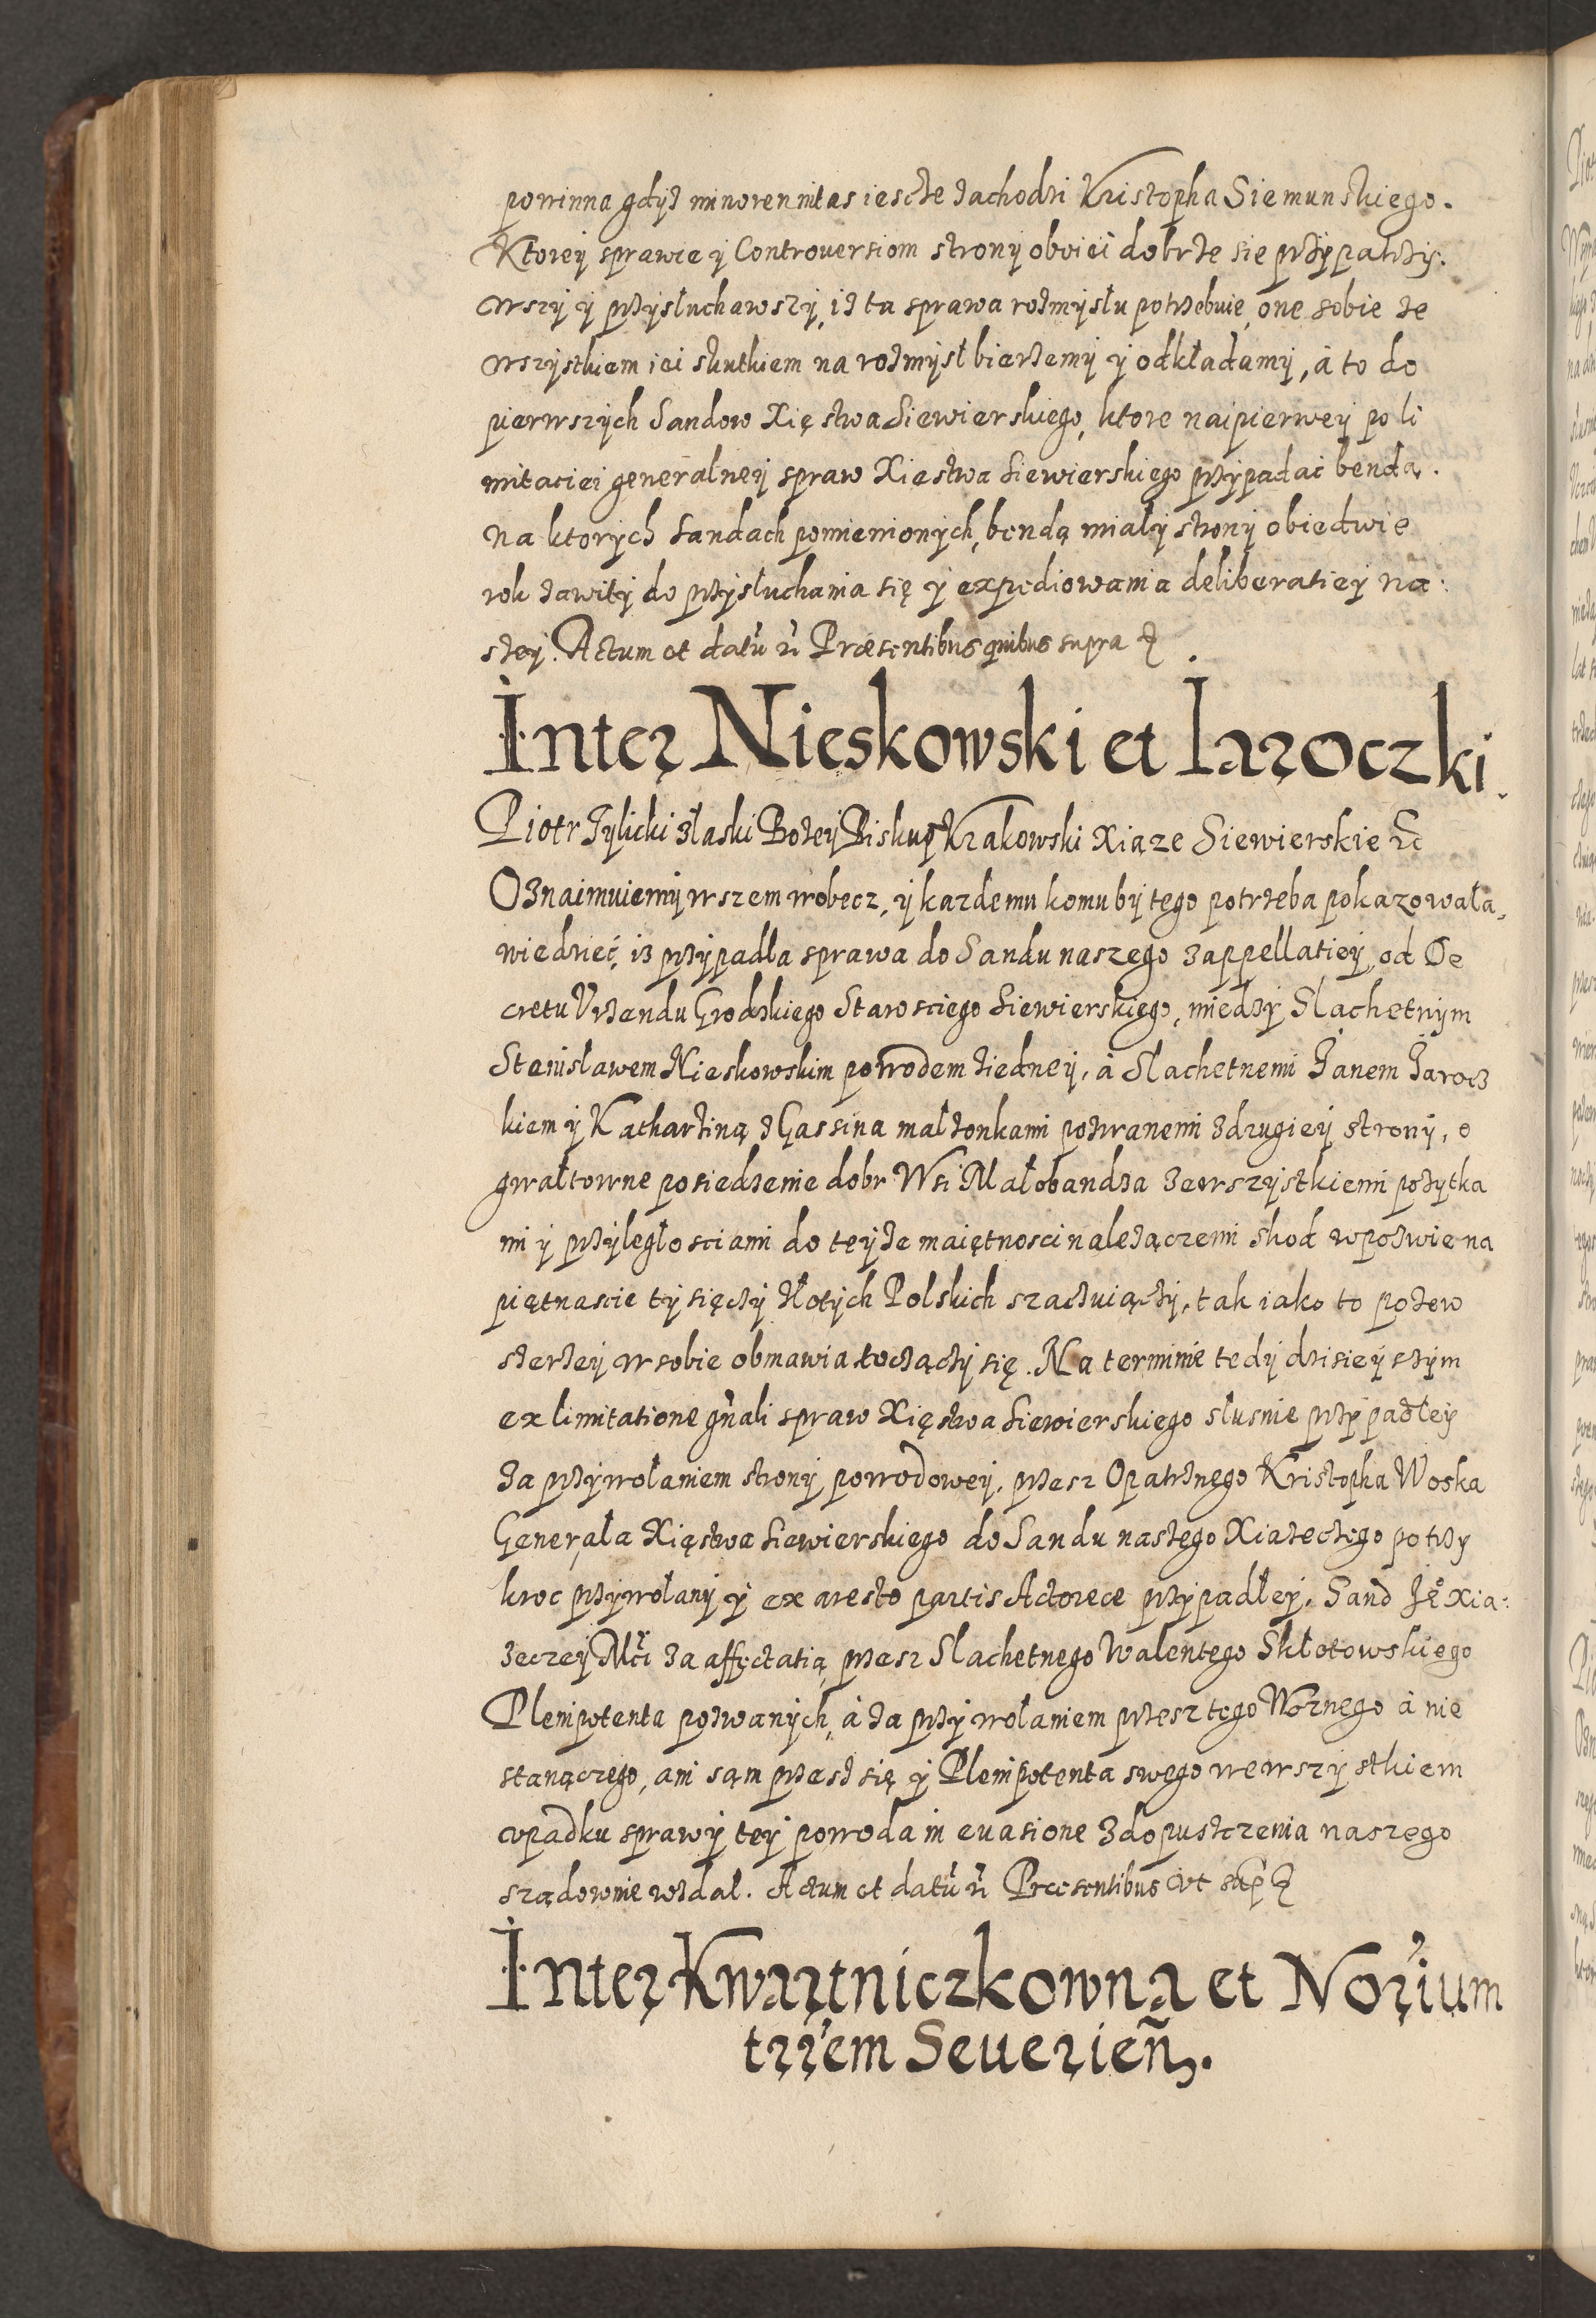 powinna gdyz minorennitas iescze zachodzi Kristopha Siemunskiego.
Ktorey sprawie y Controuersiom strony oboiei dobrze się przypatrzy:
wszy y przysłuchawszy, iz ta sprawa rozmysłu potrzebuie, one sobie ze
wszystkiem iei skutkiem na rozmysł bierzemy y odkładamy, à to do
pierwszych Sandow Xięstwa Siewierskiego, ktore naipierwey po li
mitaciei generalney spraw Xięstwa Siewierskiego przypadać bendą.
Na ktorych Sandach pomienionych, bendą miały strony obiedwie
rok zawity do przysłuchania się y expediowania deliberatiey na:
szey. Actum et datũ ũ Præsentibus quibus supra
Inter Nieskowski et Iaroczki.
Piotr Tylicki złaski Bozey Biskup Krakowski Xiąze Siewierskie
Oznaimuiemy wszem wobecz, y kazdemu komu by tego potrzeba pokazowała,
wiedzieć, iz przypadła sprawa do Sandu naszego zappellatiey, od De
cretu Vrzendu Grodzkiego Starosciego Siewierskiego, miedzy Slachetnym
Stanisławem Nieskowskim powodem ziedney, à Slachetnemi Janem Jarocz
kiem y Kathartiną z Gassina małzonkami pozwanemi zdrugiey strony, o
gwałtowne posiedzenie dobr Wsi Małobandza zewszystkiemi pozytka
mi y przyległosciami do teyze maiętnosci nalezączemi skod wpozwie na
piętnascie tysięczy złotych Polskich szaczuiączy, tak iako to pozew
szerzey w sobie obmawia toczączy się. Na terminie tedy dzisieyszym
ex limitatione gñali spraw Xięstwa Siewierskiego słusnie przypadłey
za przywołaniem strony powodowey, przesz Opatrznego Kristopha Woska
Generała Xięstwa Siewierskiego do Sandu naszego Xiazeczego po trzy
kroc przywołany y ex aresto partis Actoreæ przypadłey, Sand Jeº Xia:
zeczey Mći za affectatią przesz Slachetnego Walentego Skłotowskiego
Plenipotenta pozwanych, à za przywołaniem przesz tego Woznego à nie
stanączego, ani sąm przesz się y Plenipotenta swego wewszystkiem
vpadku sprawy tey powoda in euasione zdopusczenia naszego
sządownie wzdał. Actum et datũ ũ Præsentibus vt sup
Inter Kwartniczkowna et Norium
trrem Seuerieñ.